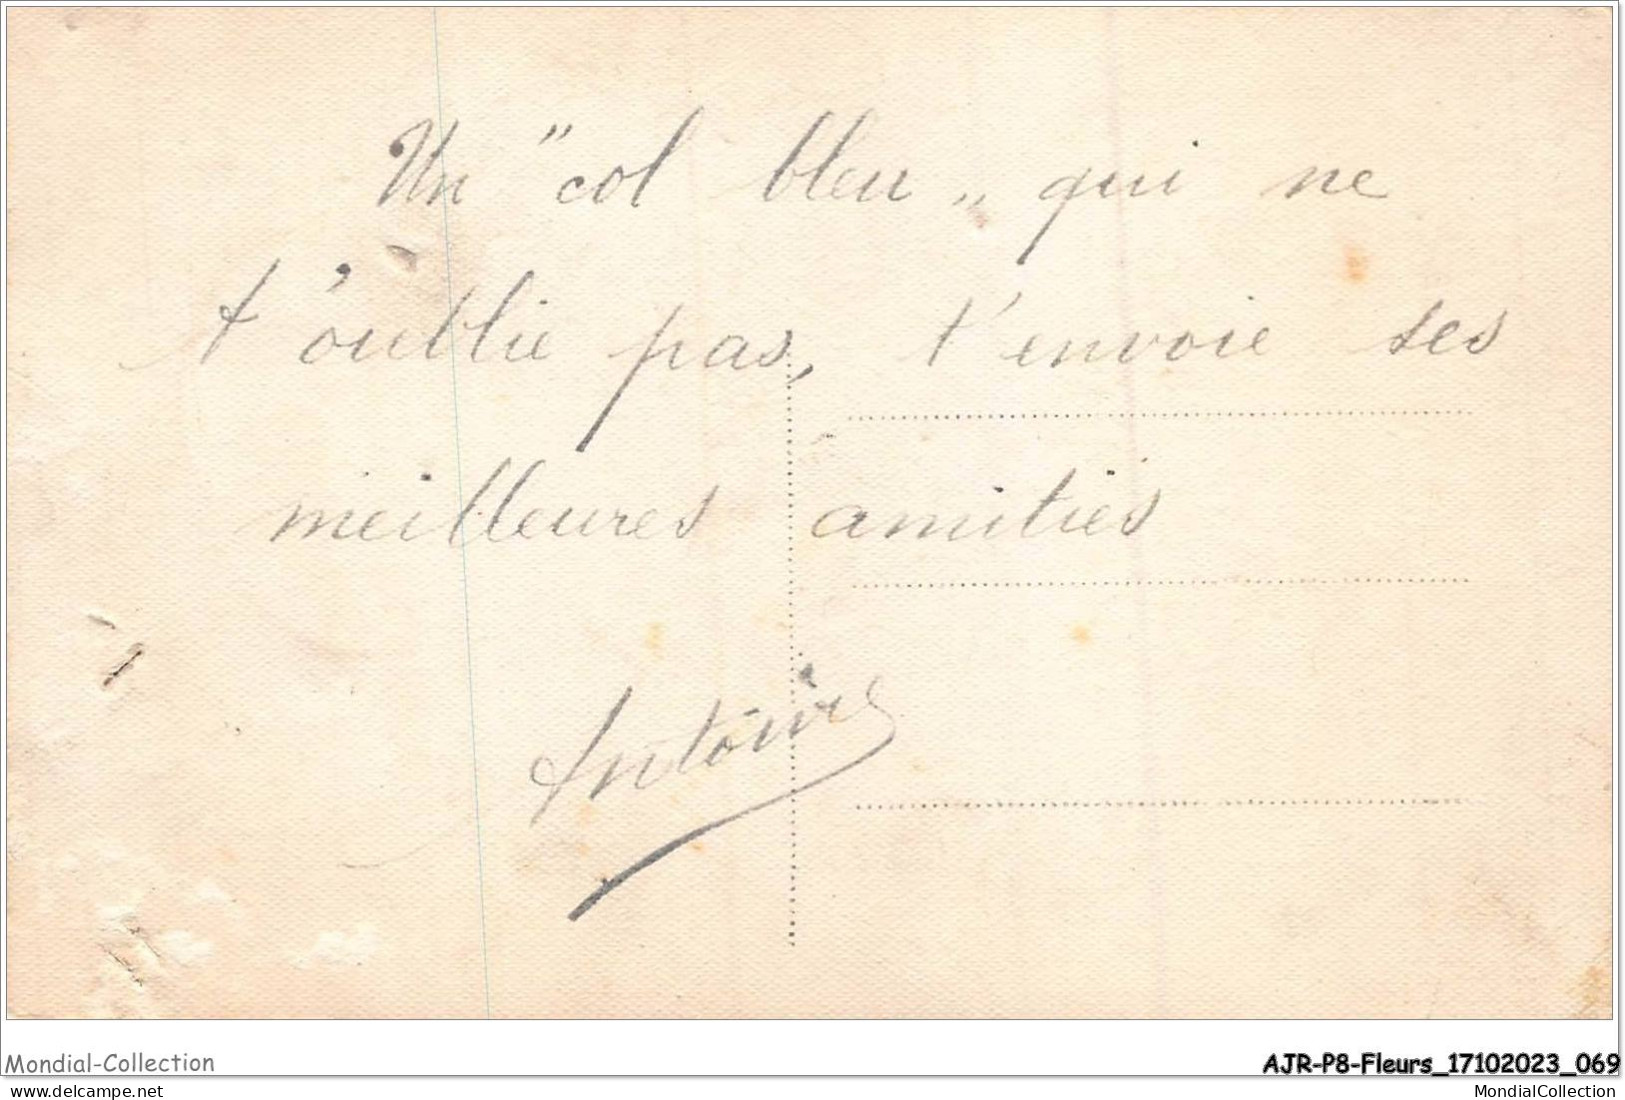 Un "col bleu" qui ne
t'oublie pas, t'envoie ses
meilleures amitiés
Antoine
Mondial-Collection
AJR-P8-Fleurs_17102023_069
delcampe.net
MondialCollection